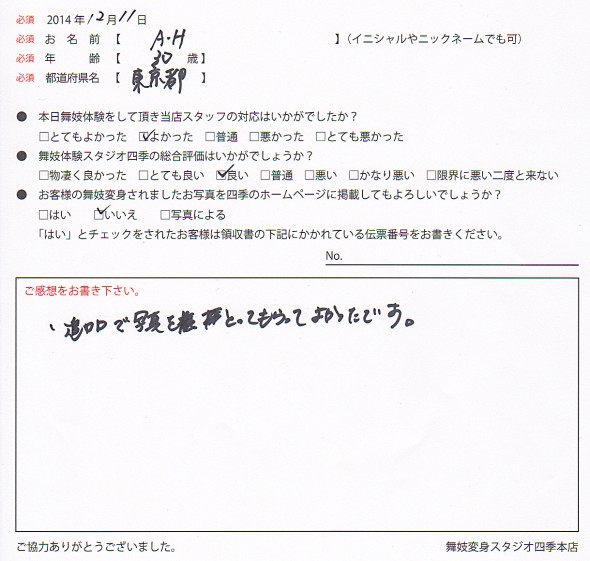 必須 2014年12月11日
必須 お名前【 A・H 】(イニシャルやニックネームでも可)
必須 年齢【 30 歳】
必須 都道府県名【 東京都 】
● 本日舞妓体験をして頂き当店スタッフの対応はいかがでしたか？
□とてもよかった ☑よかった □普通 □悪かった □とても悪かった
● 舞妓体験スタジオ四季の総合評価はいかがでしょうか？
□物凄く良かった □とても良い ☑良い □普通 □悪い □かなり悪い □限界に悪い二度と来ない
● お客様の舞妓変身されましたお写真を四季のホームページに掲載してもよろしいでしょうか？
□はい ☑いいえ □写真による
「はい」とチェックをされたお客様は領収書の下記にかかれている伝票番号をお書きください。
No.
ご感想をお書き下さい。
で写真を とってもらってよかったです。
ご協力ありがとうございました。
舞妓変身スタジオ四季本店